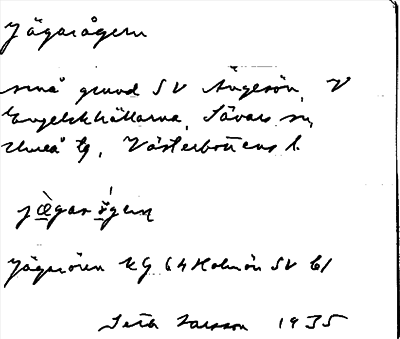 Jägarågern
små grund SV Ängesön, V
Engelskhällarna, Sävars sn,
Umeå tg, Västerbottens l.
Jägarören KG 64 Holmön SV bl
Seth Larsson 1935